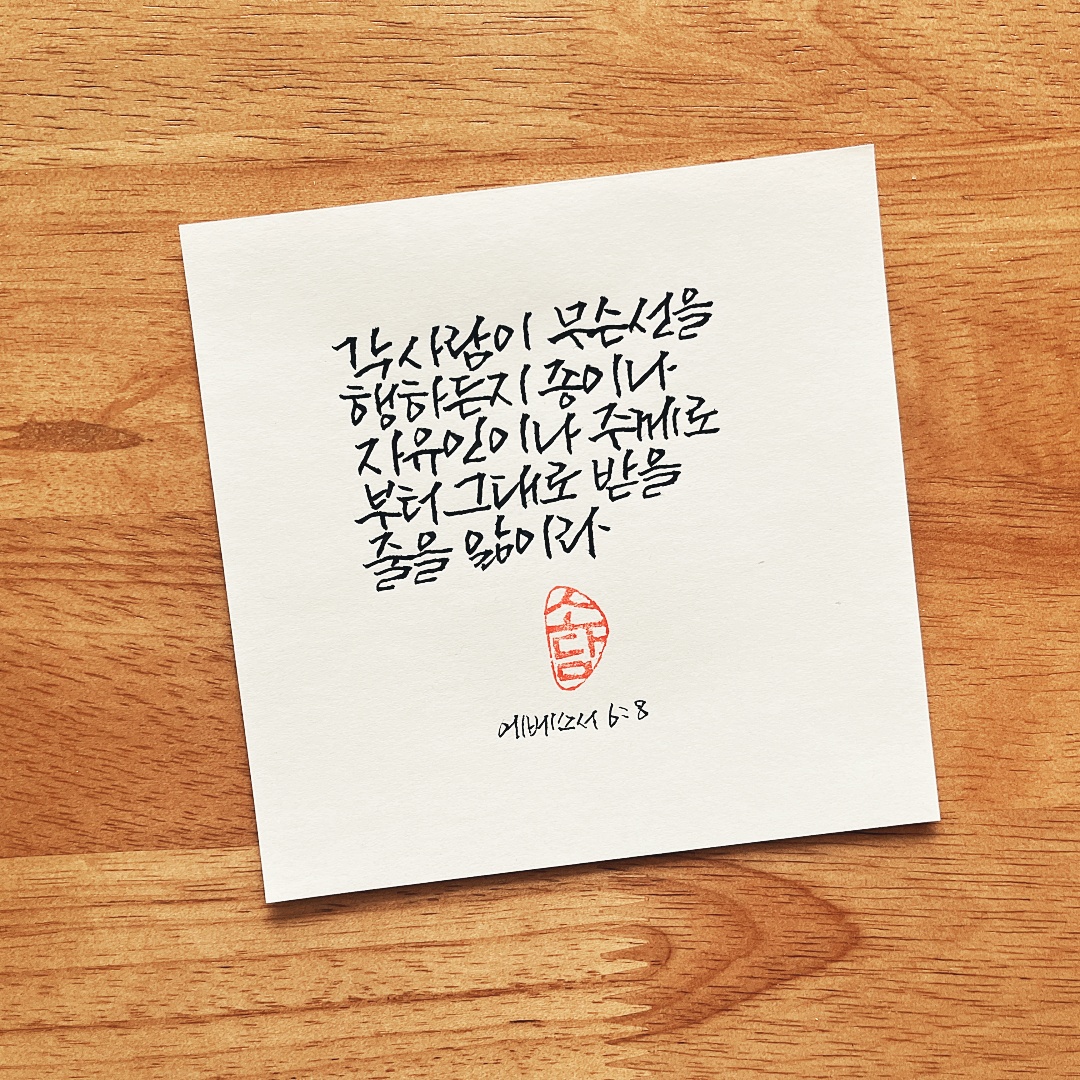 각 사람이 무슨 선을
행하든지 종이나
자유인이나 주께로
부터 그대로 받을
줄을 앎이라
소담
에베소서 6:8